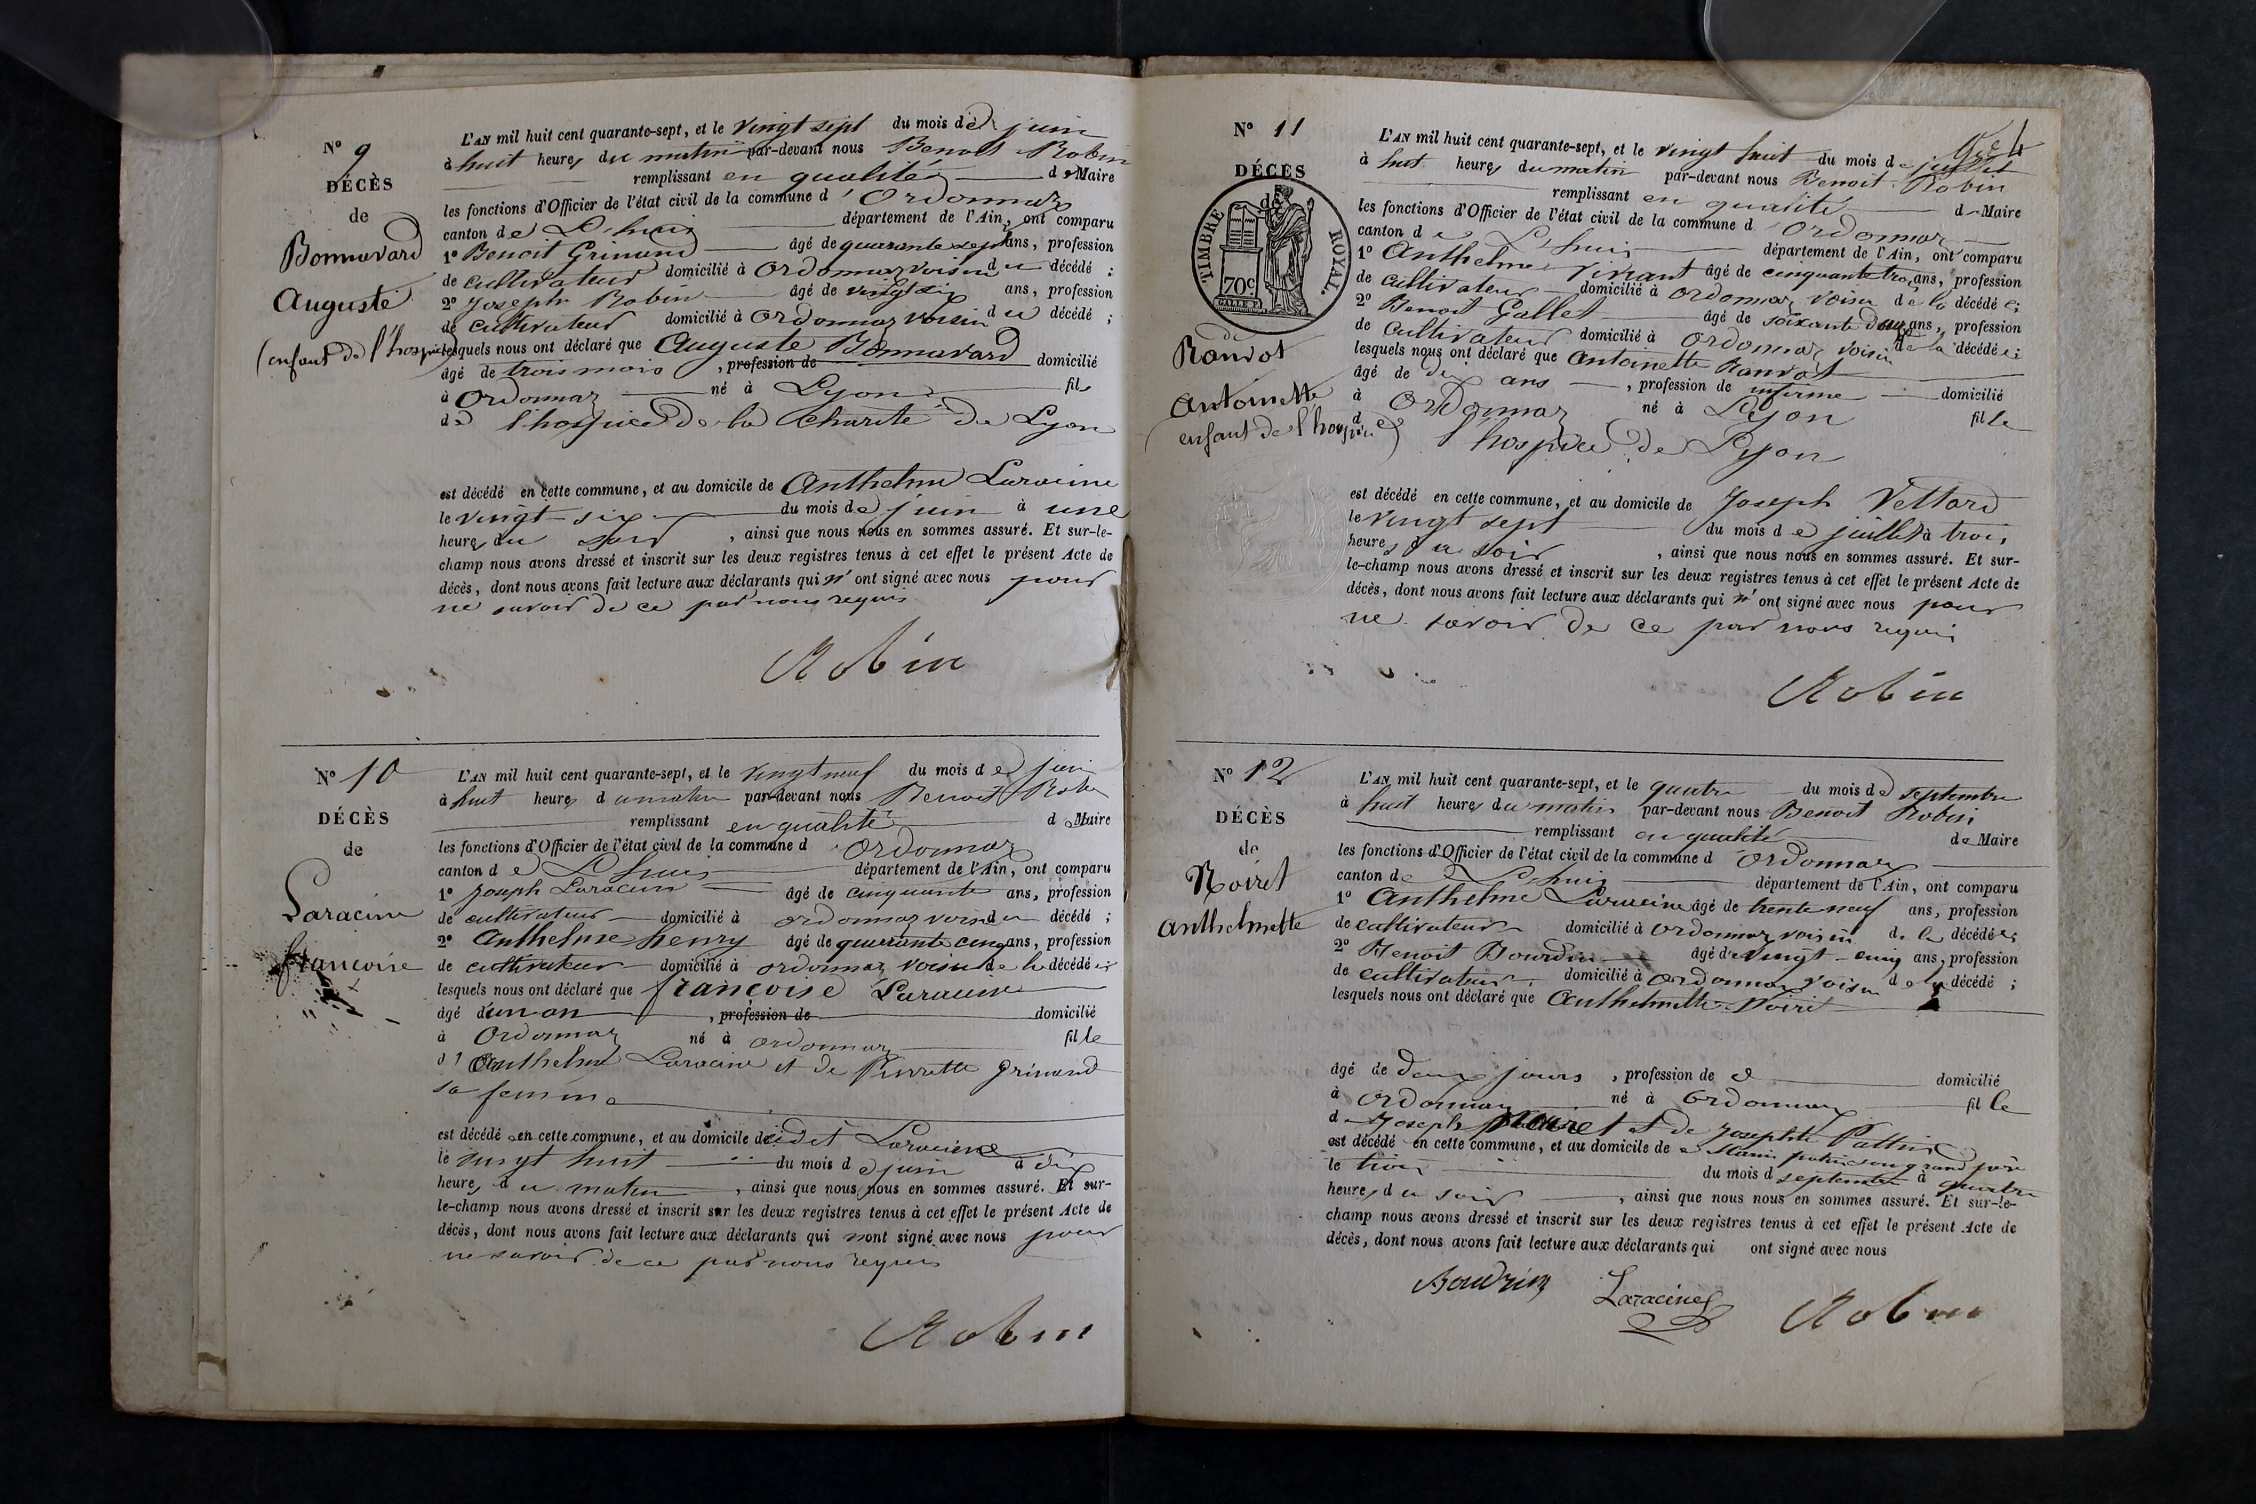 N° 9
DÉCÈS
de
Bonnavard
Auguste
(enfant de l'hospice)
L'AN mil huit cent quarante-sept, et le vingt sept du mois de juin
à huit heures du matin par-devant nous Benoit Robin
remplissant en qualité de Maire
les fonctions d'Officier de l'état civil de la commune d'Ordonnaz
canton de L'huis département de l'Ain, ont comparu
1° Benoit Grinand âgé de quarante sept ans, profession
de cultivateur domicilié à Ordonnaz voisin du décédé ;
2° Joseph Robin âgé de vingt six ans, profession
de cultivateur domicilié à Ordonnaz voisin du décédé ;
lesquels nous ont déclaré que Auguste Bonnavard
âgé de trois mois , profession de domicilié
à Ordonnaz né à Lyon fils
de l'hospice de la Charité de Lyon
est décédé en cette commune, et au domicile de Anthelme Laracine
le vingt-six du mois de juin à une
heure du soir , ainsi que nous nous en sommes assuré. Et sur-le-
champ nous avons dressé et inscrit sur les deux registres tenus à cet effet le présent Acte de
décès, dont nous avons fait lecture aux déclarants qui n'ont signé avec nous pour
ne savoir de ce par nous requis
Robin
N° 10
DÉCÈS
de
Laracine
françoise
L'AN mil huit cent quarante-sept, et le vingt neuf du mois de juin
à huit heures du matin par-devant nous Benoit Robin
remplissant en qualité de Maire
les fonctions d'Officier de l'état civil de la commune d'Ordonnaz
canton de L'huis département de l'Ain, ont comparu
1° Joseph Laracine âgé de cinquante ans, profession
de cultivateur domicilié à ordonnaz voisin du décédé ;
2° Anthelme henry âgé de quarante cinq ans, profession
de cultivateur domicilié à ordonnaz voisin de la décédée
lesquels nous ont déclaré que françoise Laracine
âgé d'un an , profession de domicilié
à Ordonnaz né à ordonnaz fille
d'Anthelme Laracine et de Pierrette Grinand
sa femme
est décédé en cette commune, et au domicile dudit Laracine
le vingt huit du mois de juin à dix
heures du matin , ainsi que nous nous en sommes assuré. Et sur-
le-champ nous avons dressé et inscrit sur les deux registres tenus à cet effet le présent Acte de
décès, dont nous avons fait lecture aux déclarants qui n'ont signé avec nous pour
ne savoir de ce par nous requis
Robin
N° 11
DÉCÈS
de
TIMBRE ROYAL.
70c
de
Ranvot
Antoinette
(enfant de l'hospice)
L'AN mil huit cent quarante-sept, et le vingt huit du mois de juillet
à huit heures du matin par-devant nous Benoit Robin
remplissant en qualité de Maire
les fonctions d'Officier de l'état civil de la commune d'Ordonnaz
canton de L'huis département de l'Ain, ont comparu
1° Anthelme Vivant âgé de cinquante trois ans, profession
de cultivateur domicilié à ordonnaz voisin de la décédée ;
2° Benoit Gallet âgé de soixante douze ans, profession
de cultivateur domicilié à Ordonnaz voisin de la décédée ;
lesquels nous ont déclaré que Antoinette Ranvot
âgé de dix ans , profession de infirme domicilié
à Ordonnaz né à Lyon fille
de l'hospice de Lyon
est décédé en cette commune, et au domicile de Joseph Vettard
le vingt sept du mois de juillet à trois
heures du soir , ainsi que nous nous en sommes assuré. Et sur-
le-champ nous avons dressé et inscrit sur les deux registres tenus à cet effet le présent Acte de
décès, dont nous avons fait lecture aux déclarants qui n'ont signé avec nous pour
ne savoir de ce par nous requis
Robin
N° 12
DÉCÈS
de
Noiret
Anthelmette
L'AN mil huit cent quarante-sept, et le quatre du mois de septembre
à huit heures du matin par-devant nous Benoit Robin
remplissant en qualité de Maire
les fonctions d'Officier de l'état civil de la commune d'Ordonnaz
canton de L'huis département de l'Ain, ont comparu
1° Anthelme Laracine âgé de trente neuf ans, profession
de cultivateur domicilié à ordonnaz voisin de la décédée
2° Benoit Bourdin âgé de vingt-cinq ans, profession
de cultivateur domicilié à Ordonnaz voisin de la décédé ;
lesquels nous ont déclaré que Anthelmette Noiret
âgé de deux jours , profession de domicilié
à Ordonnaz né à Ordonnaz fille
de Joseph Noiret et de Josephte Pattin
est décédé en cette commune, et au domicile de son grand père
le trois du mois de septembre à quatre
heures du soir , ainsi que nous nous en sommes assuré. Et sur-le-
champ nous avons dressé et inscrit sur les deux registres tenus à cet effet le présent Acte de
décès, dont nous avons fait lecture aux déclarants qui ont signé avec nous
Bourdin Laracine Robin